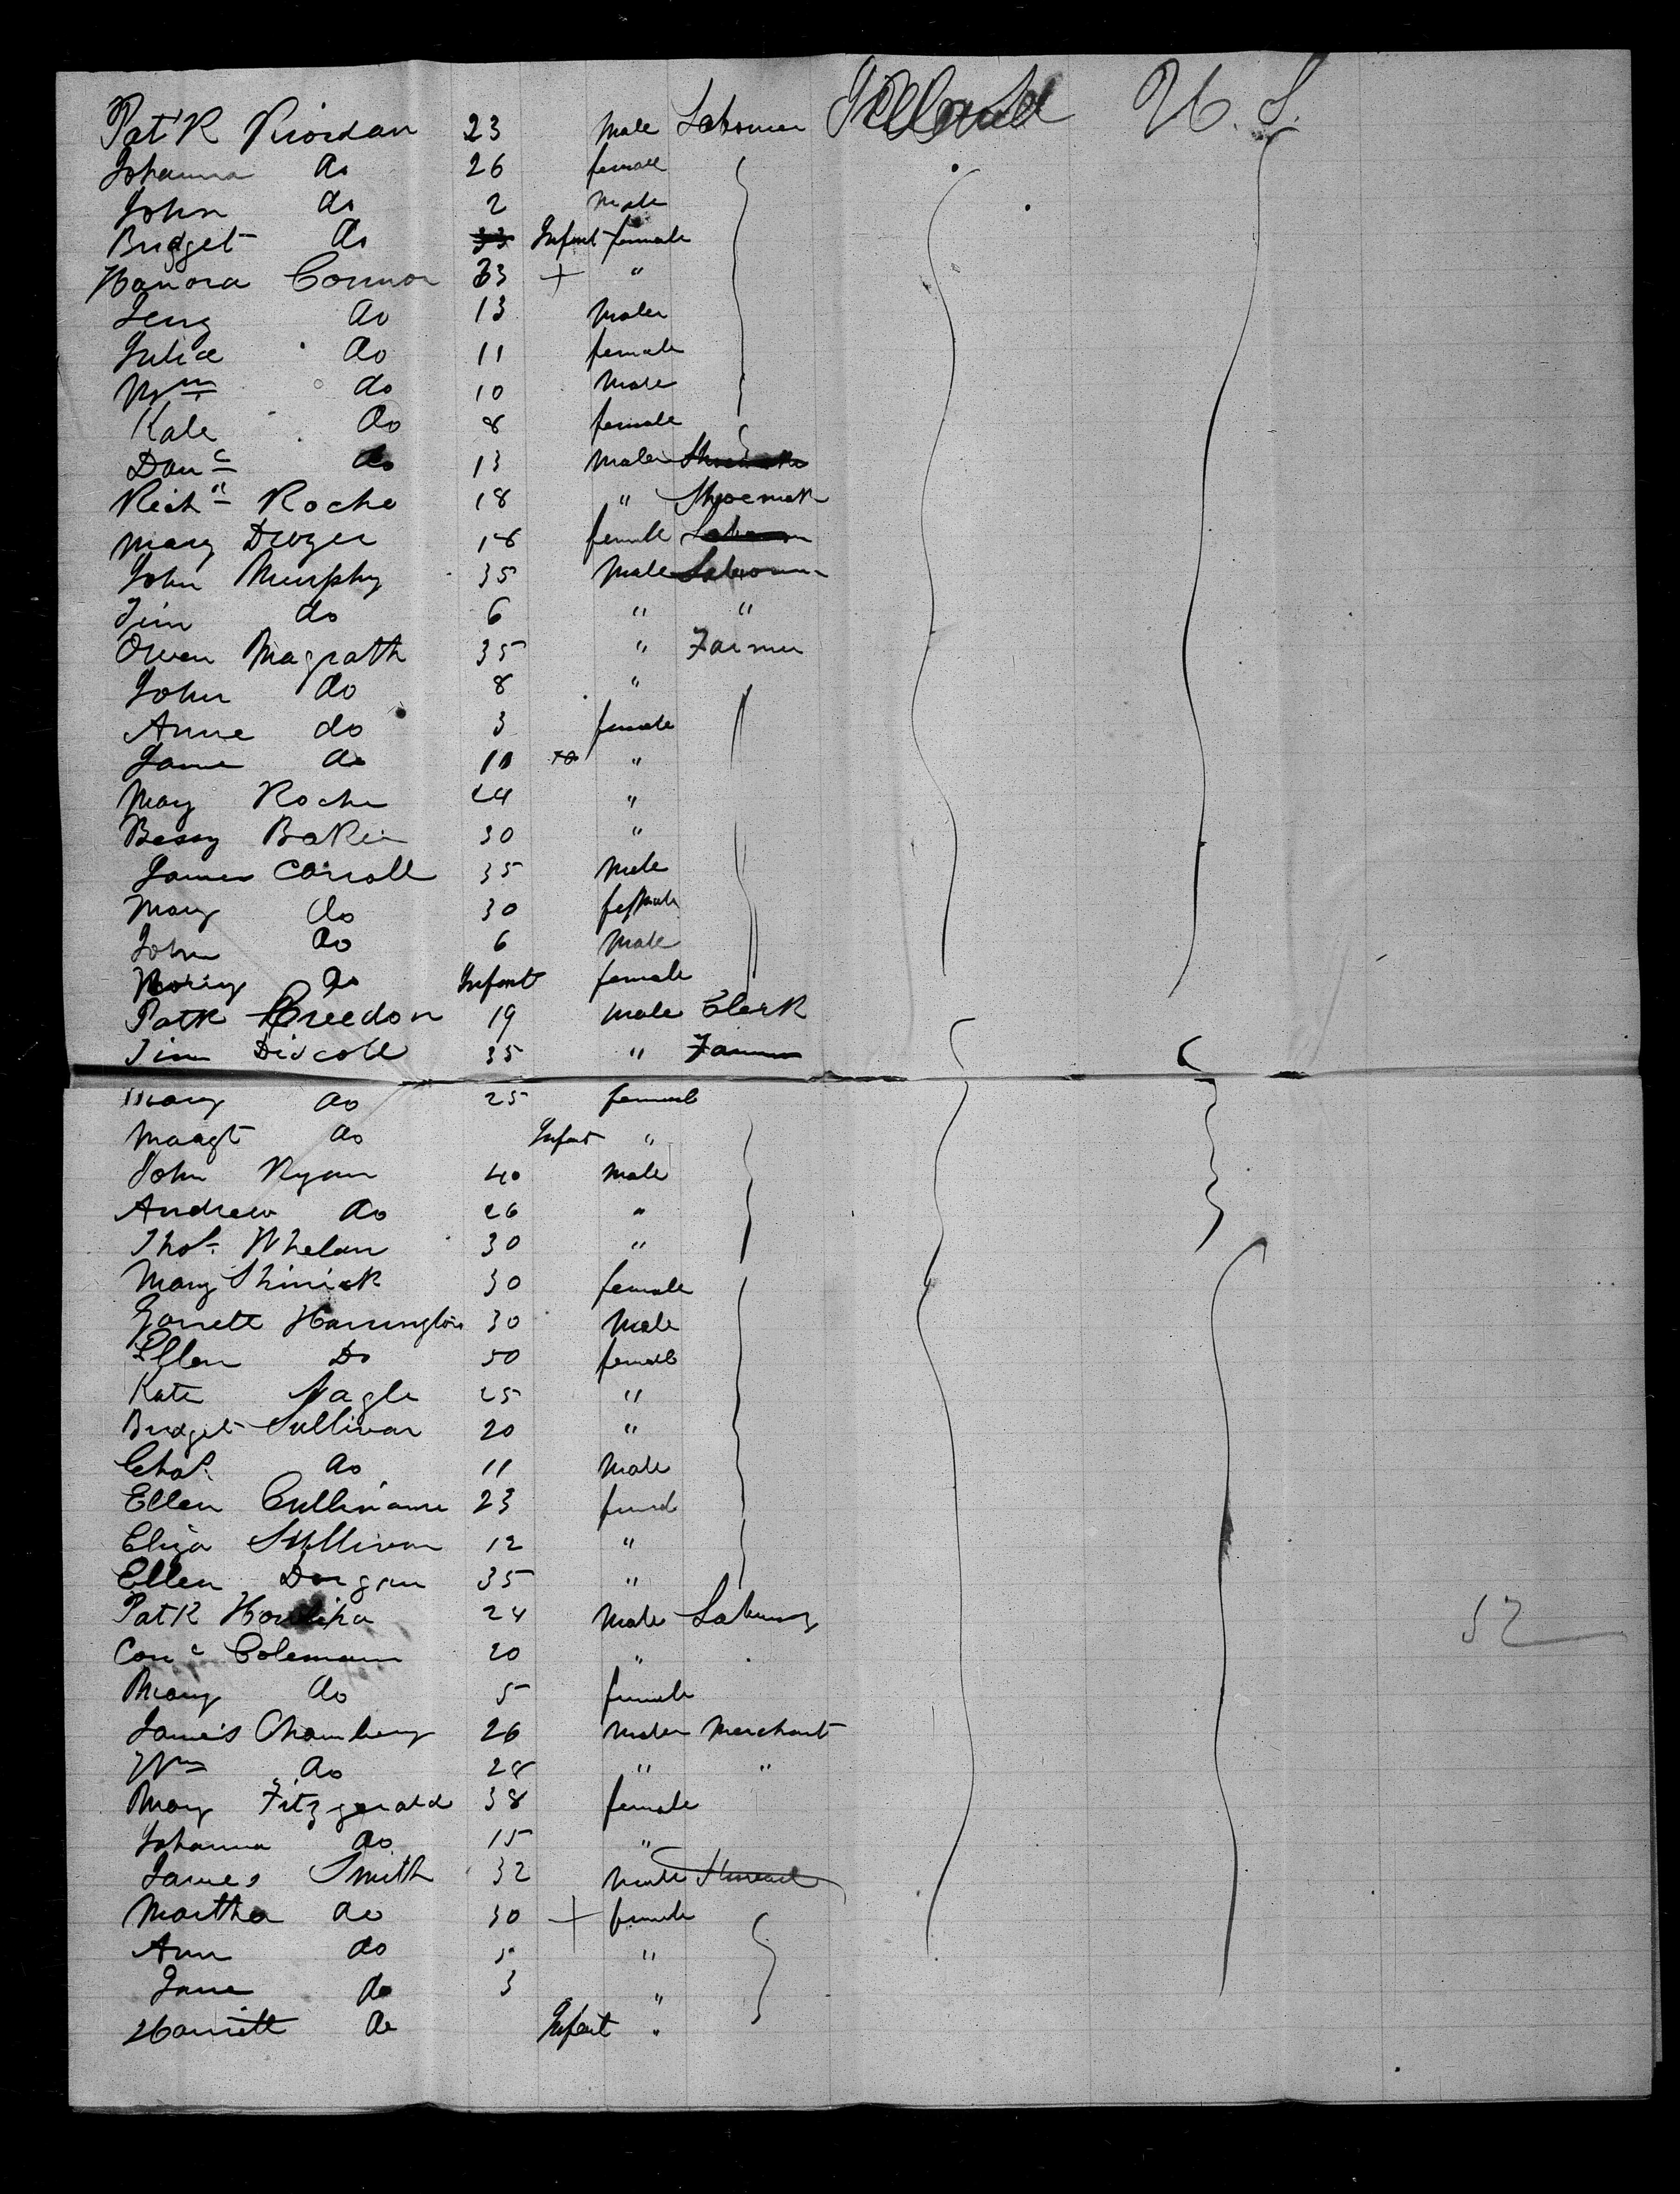 Pat'k Riordan 23 Male Labourer Ireland U. S.
Johanna do 26 female
John do 2 Male
Bridget do 33 Infant female
Hanora Connor 33 + "
Jerry do 13 Male
Julia do 11 female
Wm do 10 Male
Kate do 8 female
Danc do 13 Male
Richd Roche 18 " Shoemak
Mary Dwyer 18 female Labourer
John Murphy 35 Male Labourer
Tim do 6 " "
Owen Magrath 35 " Farmer
John do 8 "
Anne do 3 female
Jane do 10 "
Mary Roche 24 "
Bessy Baker 30 "
James Carroll 35 Male
Mary do 30 female
John do 6 Male
do Infant female
Patk Creedon 19 Male Clerk
Tim Discoll 35 " Farmer
Mary do 25 female
Maagt do Infant "
John Ryan 40 Male
Andrew do 26 "
Thos. Whelan 30 "
Mary Shinick 30 female
Garrett Harrington 30 Male
Ellen Do 50 female
Kate Nagle 25 "
Bridget Sullivan 20 "
Chas. do 11 Male
Ellen Cullinane 23 femal
Eliza Sullivan 12 "
Ellen Dorgan 35 "
Patk 24 Male Labourer 52
Conc Coleman 20 "
Mary do 5 female
James Chambers 26 Male Merchant
Wm do 28 " "
Mary Fitzgerald 38 female
Johanna do 15 "
James Smith 32 Male
Martha do 30 + female
Ann do 5 "
Jane do 3 "
Harriett do Infant "